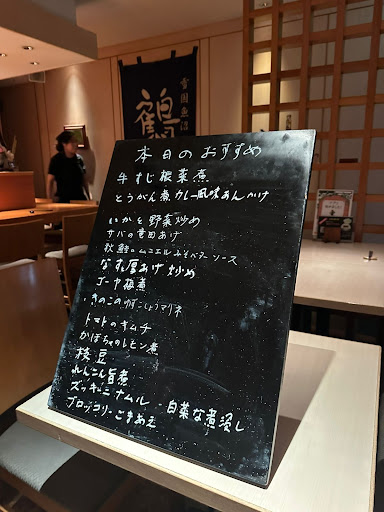 雪国
鶴
本日のおすすめ
牛すじ根菜煮
とうがん煮カレー風味あんかけ
いかと野菜炒め
サバの竜田あげ
秋鮭のムニエルみそバターソース
なす厚あげ炒め
ゴーヤ梅煮
きのこのゆずこしょうマリネ
トマトのキムチ
かぼちゃのレモン煮
枝豆
れんこん旨煮
ズッキーニナムル 白菜な煮浸し
ブロッコリーごまあえ